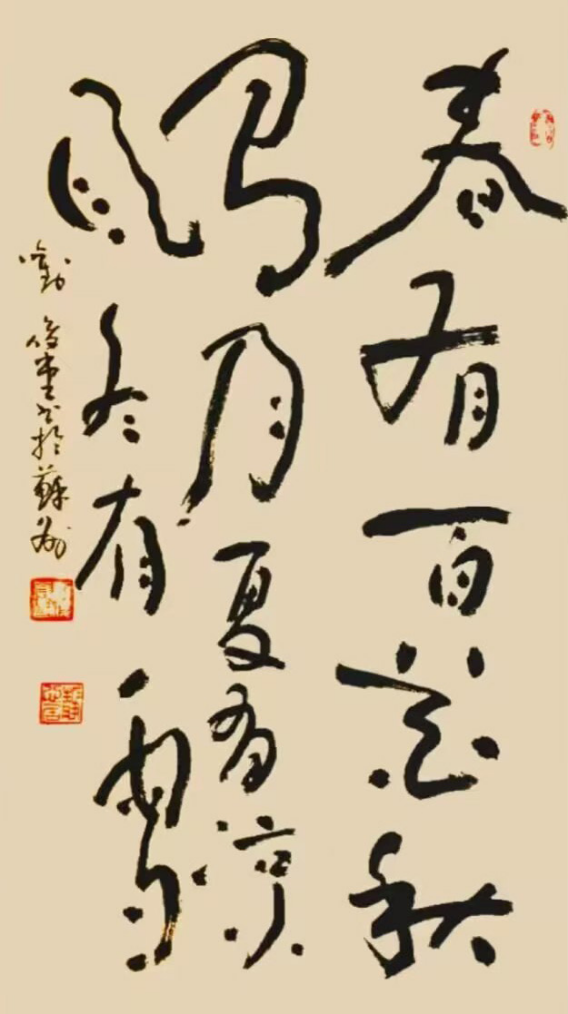 春有百花秋
月夏有凉
风冬有雪
书於蘇州